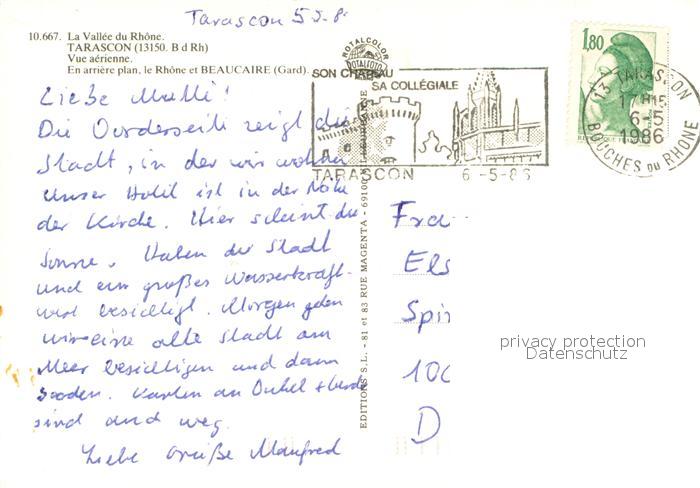 Tarascon 5 5. 8
10.667. La Vallée du Rhône.
TARASCON (13150. B d Rh)
Vue aérienne.
En arrière plan, le Rhône et BEAUCAIRE (Gard).
Liebe Mutti!
Die Vorderseite zeigt die
Stadt, in der wir wohnen
Unser Hotel ist in der Nähe
der Kirche. Hier scheint die
Sonne. Haben die Stadt
und ein großes Wasserkraft-
werk besichtigt. Morgen gehen
wir eine alte Stadt am
Meer besichtigen und dann
baden. Karten an Onkel
sind auch weg.
Liebe Grüße Manfred
EDITIONS S.L. - 81 et 83 RUE MAGENTA - 69100
ROTALCOLOR
ROTALFOTO
SON CHATEAU
SA COLLÉGIALE
TARASCON 6-5-86
1,80
13 TARASCON
17 H15
6-5
1986
BOUCHES DU RHÔNE
Fra
Els
Spir
10
D
privacy protection
Datenschutz